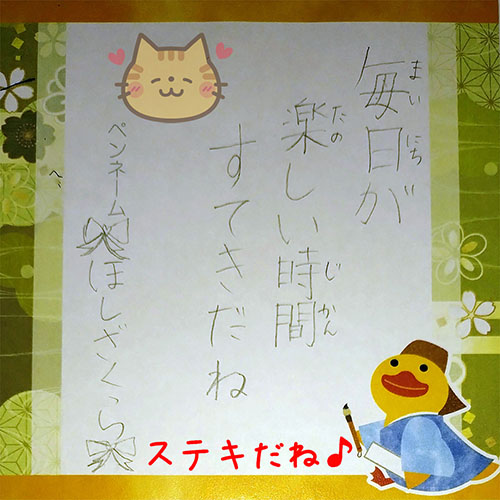 毎日が
まいにち
楽しい時間
たの
じかん
すてきだね
ペンネーム ほしざくら
ステキだね♪